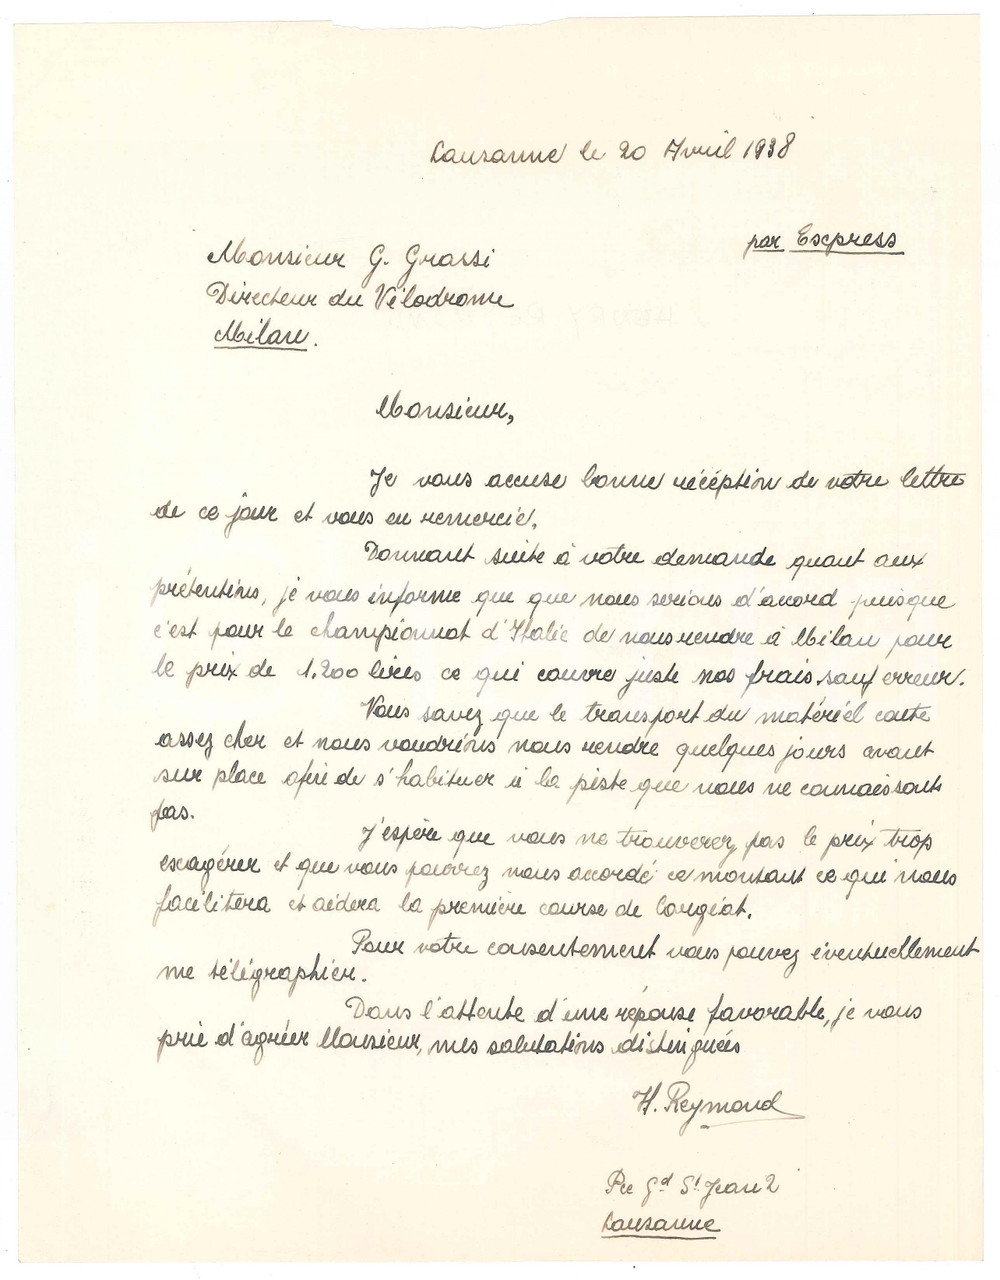 Lausanne le 20 Avril 1938
par Express
Monsieur G. Grassi
Directeur du Vélodrome
Milan.
Monsieur,
Je vous accuse bonne récéption de votre lettre
de ce jour et vous en remercie.
Donnant suite à votre demande quant aux
prétentions, je vous informe que que nous serions d'accord puisque
c'est pour le championnat d'Italie de nous rendre à Milan pour
le prix de 1.200 lires ce qui couvre juste nos frais sauf erreur.
Vous savez que le transport du matériel coute
assez cher et nous voudrions nous rendre quelques jours avant
sur place afin de s'habituer à la piste que nous ne connaissons
pas.
J'espère que vous ne trouverez pas le prix trop
exagérer et que vous pourrez nous accordé ce montant ce qui nous
facilitera et aidera la première course de
Pour votre consentement vous pouvez éventuellement
me télégraphier.
Dans l'attente d'une réponse favorable, je vous
prie d'agréer Monsieur, mes salutations distinguées
H. Reymond
Gd St Jean 2
Lausanne